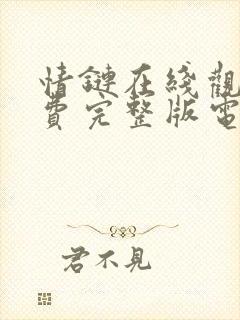 情鏈在綫觀
費完整版電
君不見